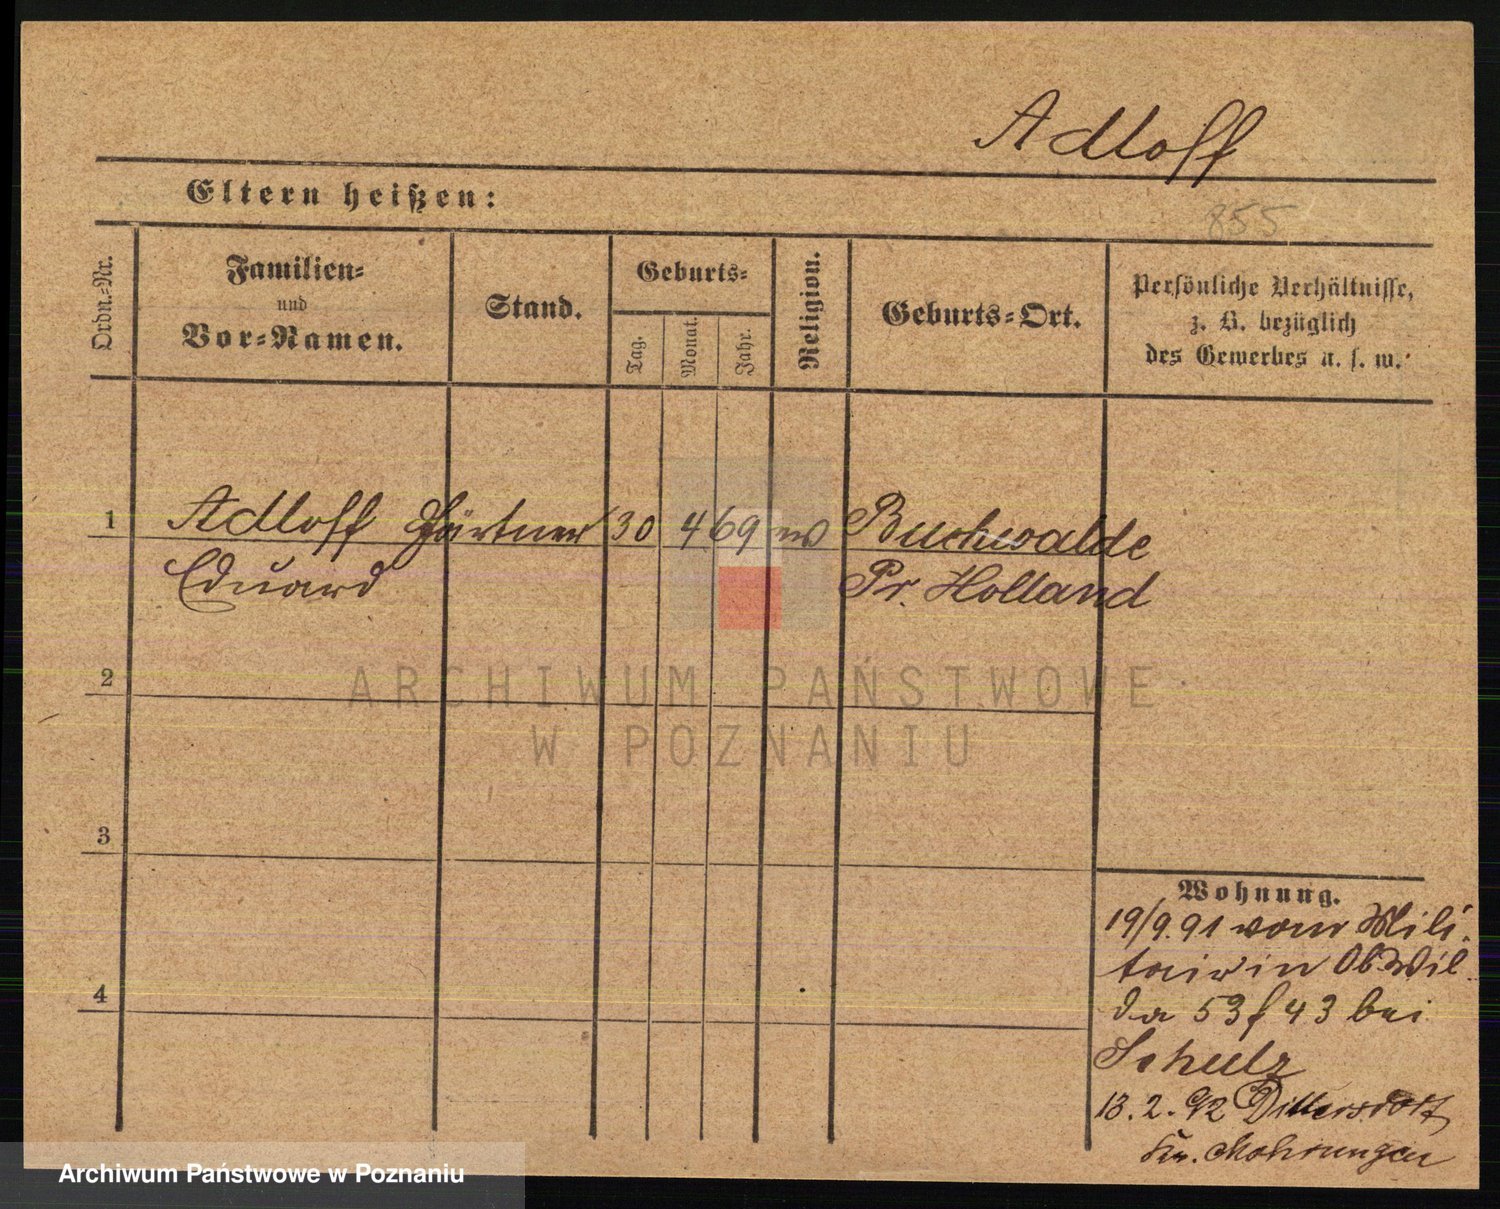 Adloff
Eltern heißen:
855
Ordn.-Nr.
Familien-
und
Vor-Namen.
Stand.
Geburts-
Tag.
Monat.
Jahr.
Religion.
Geburts-Ort.
Persönliche Verhältnisse,
z. B. bezüglich
des Gewerbes u. s. w.
1 Adloff Gärtner 30 4 69 ev Buchwalde
Eduard Pr. Holland
2
ARCHIWUM PAŃSTWOWE
W POZNANIU
3
Wohnung.
19/9.91 vom Mili
tair in Ob Wil
da 53 f 43 bei
4
Schulz
13.2.92 Dittersdorf
Kr. Mohrungen
Archiwum Państwowe w Poznaniu